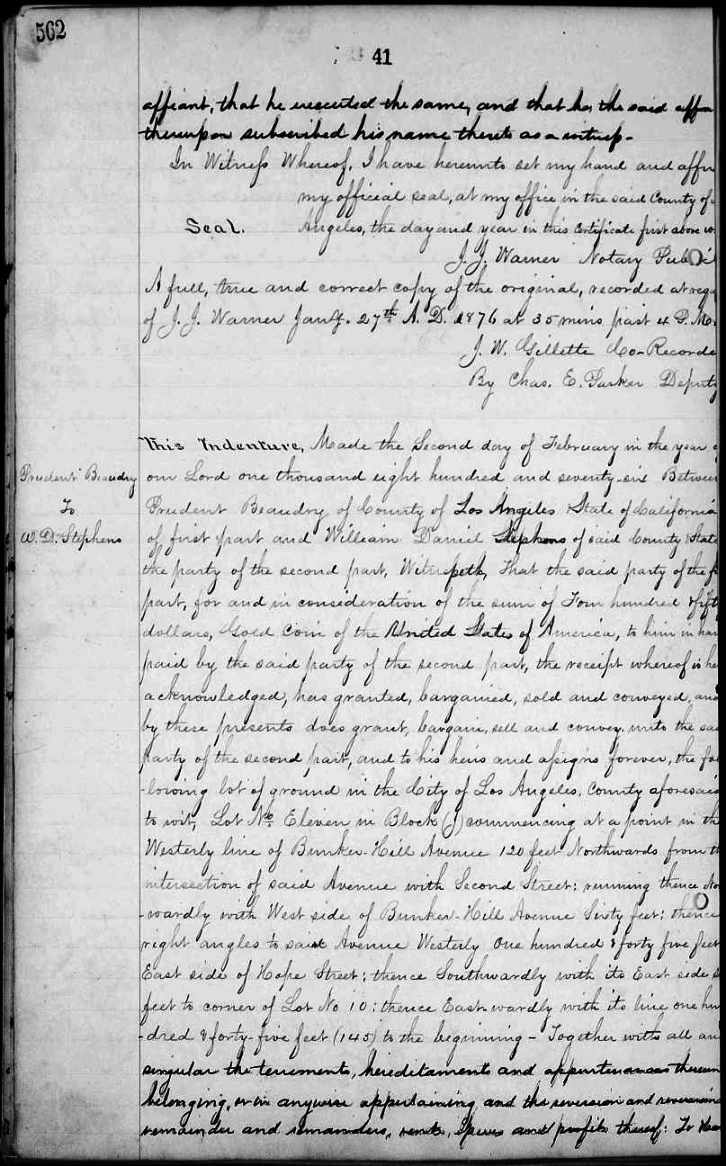 562
41
affiant, that he executed the same, and that he, the said affia
thereupon subscribed his name thereto as a witness.
In Witness Whereof, I have hereunto set my hand and affix
my official seal, at my office in the said County of
Seal. Angeles, the day and year in this Certificate first above w
J. J. Warner Notary Public
A full, true and correct copy of the original, recorded at requ
of J. J. Warner Jany. 27th A. D. 1876 at 35 mins past 4 P. M.
J. W. Gillette Co-Recorde
By Chas. E. Parker Deputy
This Indenture, Made the Second day of February in the year
Prudent Beaudry our Lord one thousand eight hundred and seventy-six Between
To Prudent Beaudry of County of Los Angeles State of California
W. D. Stephens of first part and William Daniel Stephens of said County & State
the party of the second part, Witnesseth, That the said party of the fi
part, for and in consideration of the sum of Four hundred & fifty
dollars, Gold Coin of the United States of America, to him in han
paid by the said party of the second part, the receipt whereof is he
acknowledged, has granted, bargained, sold and conveyed, and
by these presents does grant, bargain, sell and convey unto the said
party of the second part, and to his heirs and assigns forever, the fol
-lowing lot of ground in the City of Los Angeles, County aforesaid
to wit, Lot No. Eleven in Block (J) commencing at a point in the
Westerly line of Bunker-Hill Avenue 120 feet Northwards from th
intersection of said Avenue with Second Street: running thence No
-wardly with West side of Bunker-Hill Avenue Sixty feet: thence
right angles to said Avenue Westerly One hundred & forty five feet
East side of Hope Street; thence Southwardly with its East side s
feet to corner of Lot No 10: thence East-wardly with its line one hun
-dred & forty-five feet (145) to the beginning - Together with all an
singular the tenements, hereditaments and appurtenances thereun
belonging, or in anywise appertaining and the reversion and reversions
remainder and remainders, rents, issues and profits thereof: To Hav